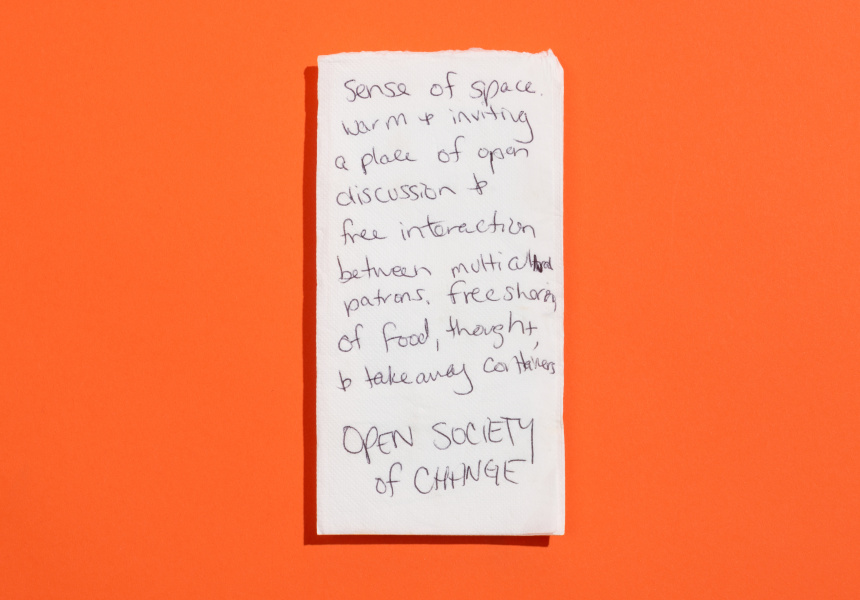 sense of space.
warm & inviting
a place of open
discussion &
free interaction
between multicultural
patrons. free sharing
of food, thought,
& takeaway containers
OPEN SOCIETY
of CHANGE